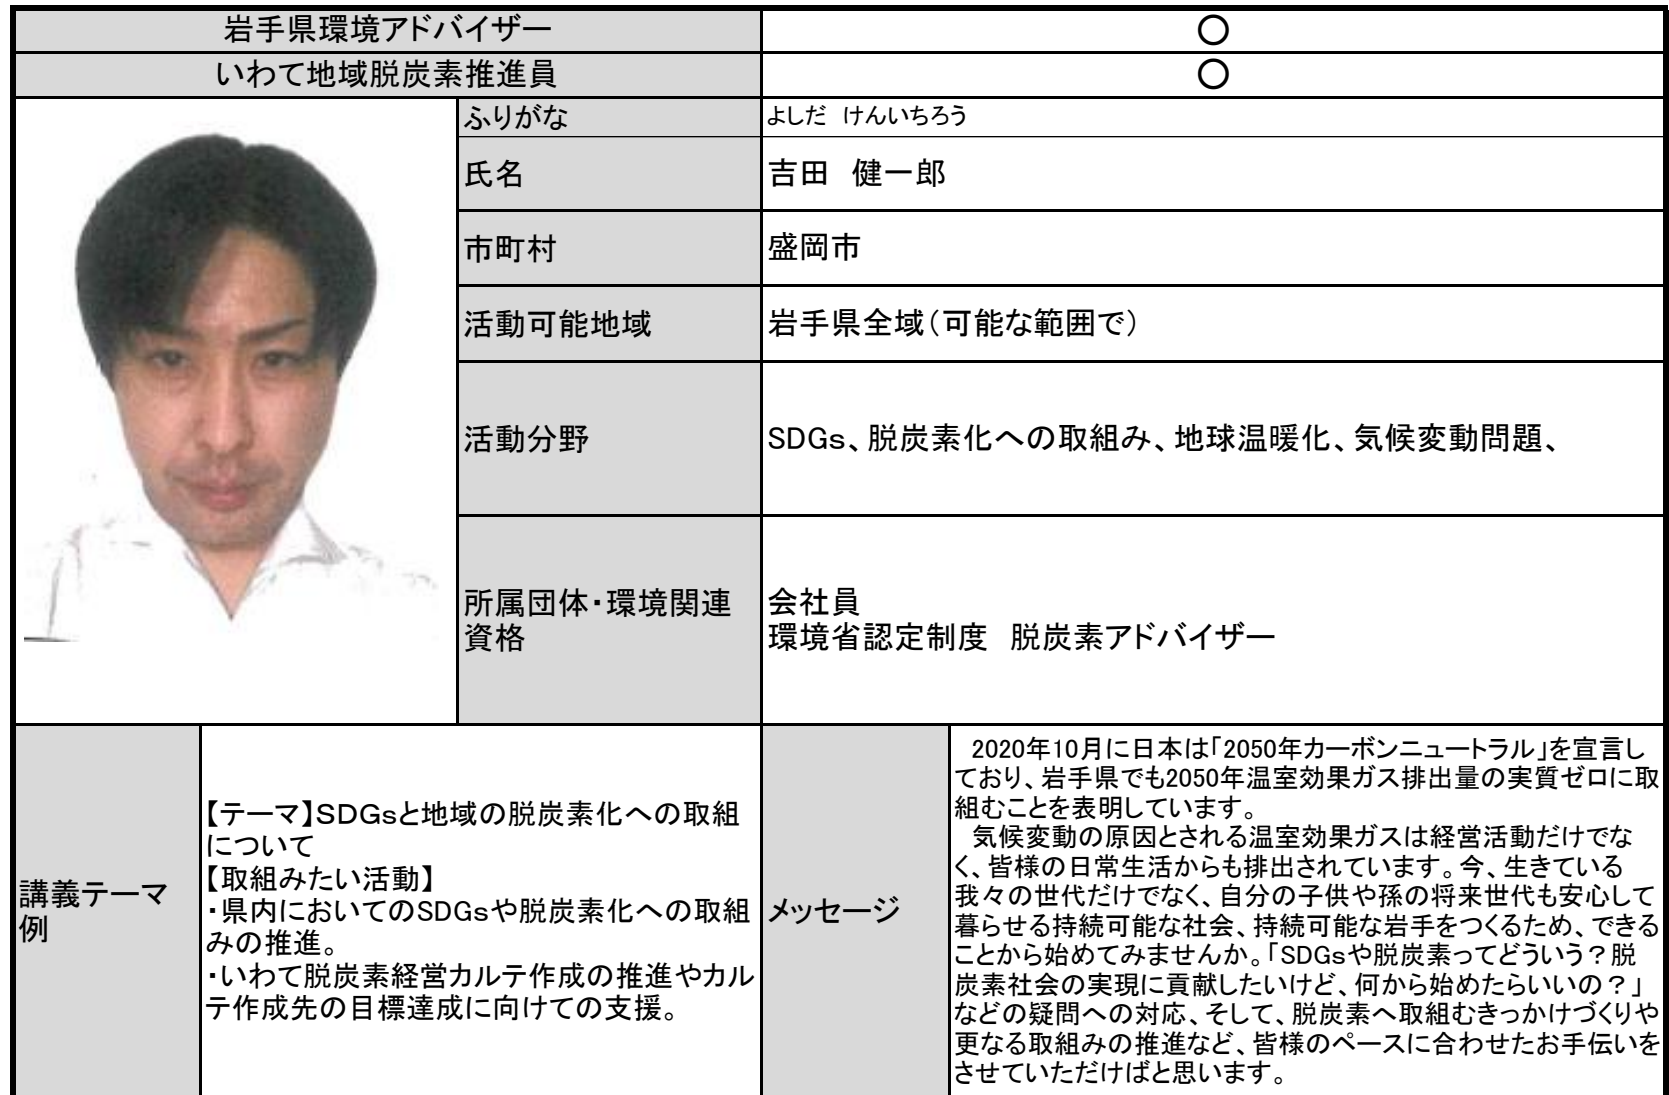 岩手県環境アドバイザー ○
いわて地域脱炭素推進員 ○
ふりがな よしだ けんいちろう
氏名 吉田 健一郎
市町村 盛岡市
活動可能地域 岩手県全域（可能な範囲で）
活動分野 SDGs、脱炭素化への取組み、地球温暖化、気候変動問題、
所属団体・環境関連
資格
会社員
環境省認定制度 脱炭素アドバイザー
講義テーマ
例
【テーマ】SDGsと地域の脱炭素化への取組
について
【取組みたい活動】
・県内においてのSDGsや脱炭素化への取組
みの推進。
・いわて脱炭素経営カルテ作成の推進やカル
テ作成先の目標達成に向けての支援。
メッセージ
2020年10月に日本は「2050年カーボンニュートラル」を宣言し
ており、岩手県でも2050年温室効果ガス排出量の実質ゼロに取
組むことを表明しています。
気候変動の原因とされる温室効果ガスは経営活動だけでな
く、皆様の日常生活からも排出されています。今、生きている
我々の世代だけでなく、自分の子供や孫の将来世代も安心して
暮らせる持続可能な社会、持続可能な岩手をつくるため、できる
ことから始めてみませんか。「SDGsや脱炭素ってどういう？脱
炭素社会の実現に貢献したいけど、何から始めたらいいの？」
などの疑問への対応、そして、脱炭素へ取組むきっかけづくりや
更なる取組みの推進など、皆様のペースに合わせたお手伝いを
させていただけばと思います。